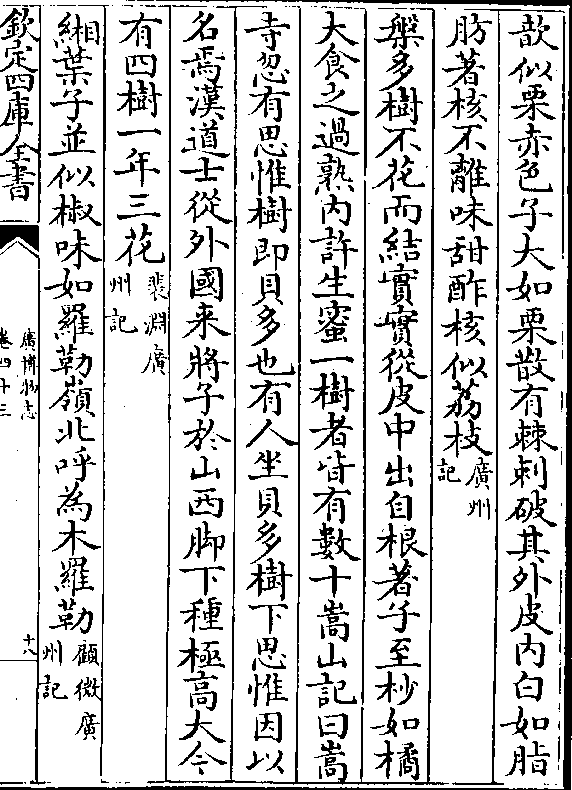 歆似栗赤色子大如栗散有棘刺破其外皮内白如脂
肪著核不離味甜酢核似荔枝廣州記
槃多樹不花而結實實從皮中出自根著子至杪如橘
大食之過熟内許生蜜一樹者皆有數十嵩山記曰嵩
寺忽有思惟樹即貝多也有人坐貝多樹下思惟因以
名焉漢道士從外國来將子於山西脚下種極高大今
有四樹一年三花裴淵廣州記
緗葉子並似椒味如羅勒嶺北呼為木羅勒顧微廣州記
欽定四庫全書
廣博物志
卷四十三
十八